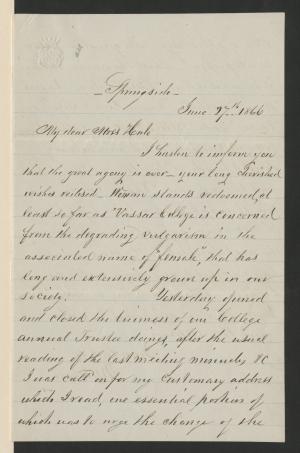 - Springside -
June 27th 1866
My dear Mrs Hale
I hasten to inform you
that the great agony is over - your long cherished
wishes realised - Woman stands redeemed, at
least so far as "Vassar College is concerned
from the degrading vulgarism in the
associated name of "female", that has
long and extensively grown up in our
society. Yesterday opened
and closed the business of our College
annual Trustee doings, after the usual
reading of the last meeting minutes &C
I was call'd on for my Customary address
which I read, one essential portion of
which was to urge the change of the